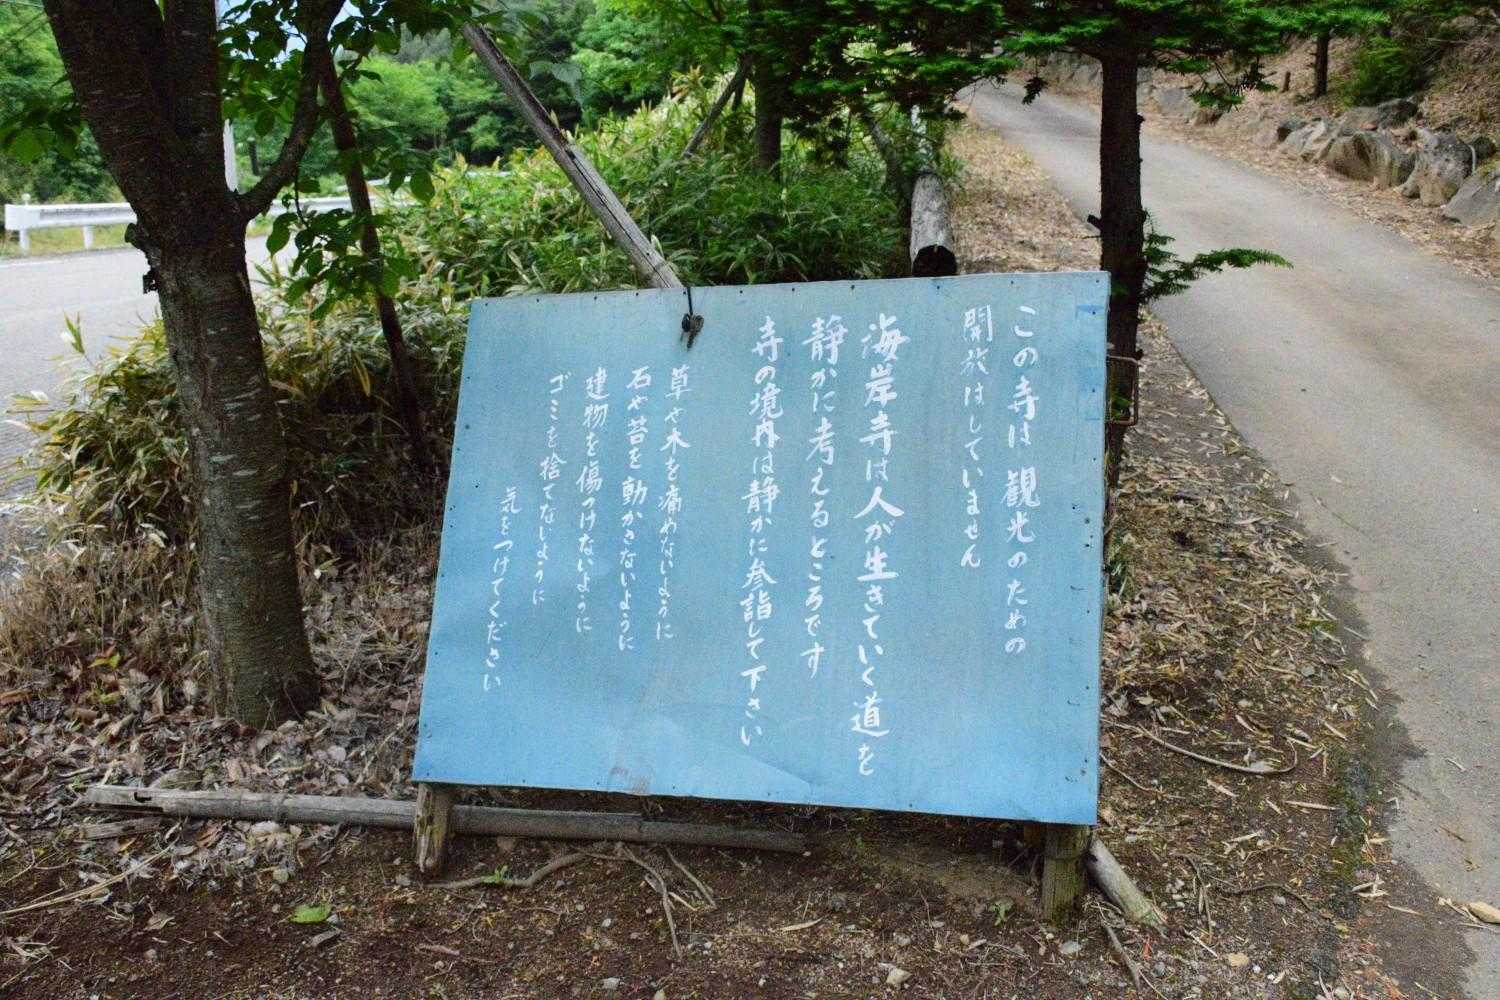 この寺は観光のための
開放はしていません
海岸寺は人が生きていく道を
静かに考えるところです
寺の境内は静かに参詣して下さい
草や木を痛めないように
石や苔を動かさないように
建物を傷つけないように
ゴミを捨てないように
気をつけてください